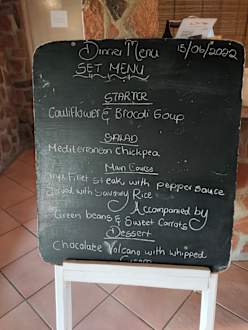 Dinner Menu 15/06/2022
SET MENU
STARTER
Cauliflower & Brocoli Soup
SALAD
Mediterranean Chickpea
Main Course
Fillet Steak with pepper sauce
Served with Savoury Rice
Accompanied by
Green beans & Sweet Carrots
Dessert
Chocolate Volcano with whipped
Cream